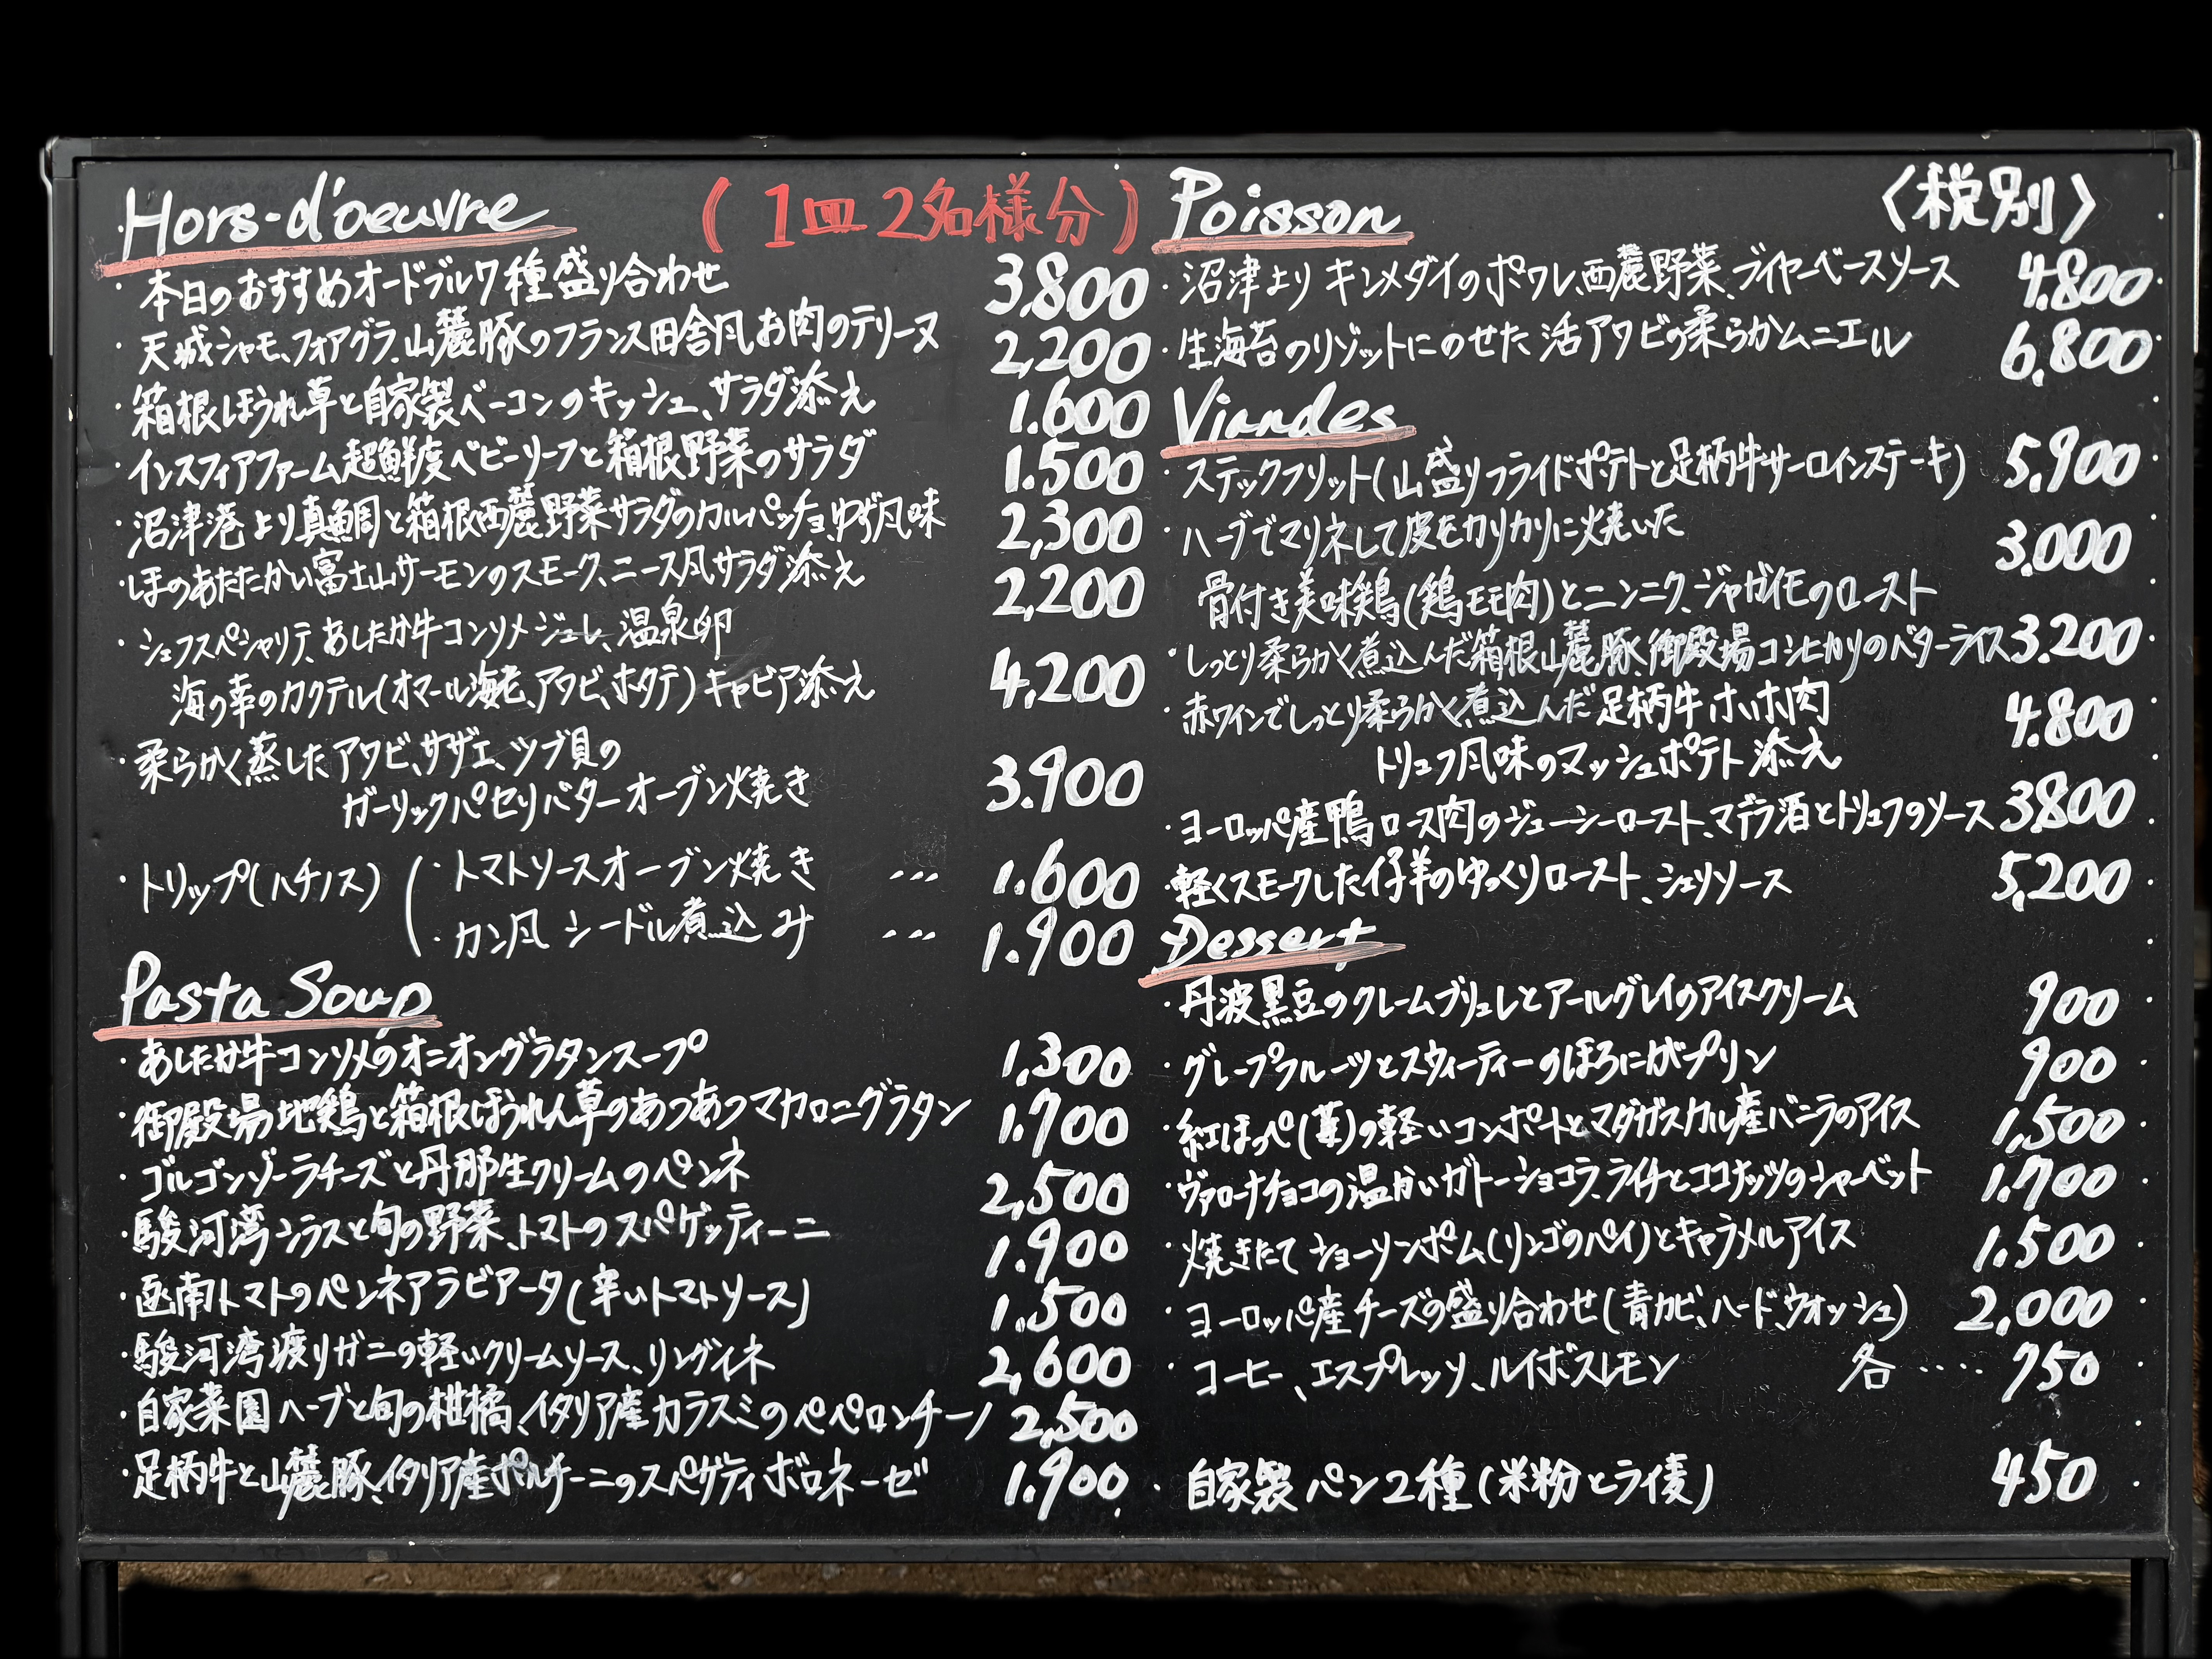 Hors-d'oeuvre (1皿 2名様分)
・本日のおすすめオードブル7種盛り合わせ 3,800
・天城シャモ、フォアグラ、山麓豚のフランス田舎風お肉のテリーヌ 2,200
・箱根ほうれ草と自家製ベーコンのキッシュ、サラダ添え 1.600
・インスフィアファーム超鮮度ベビーリーフと箱根野菜のサラダ 1.500
・沼津港より真鯛と箱根西麓野菜サラダのカルパッチョ、ゆず風味 2,300
・ほのあたたかい富士山サーモンのスモーク、ニース風サラダ添え 2,200
・シェフスペシャリテ、あしたか牛コンソメジュレ、温泉卵
海の幸のカクテル(オマール海老、アワビ、ホタテ)キャビア添え 4,200
・柔らかく蒸したアワビ、サザエ、ツブ貝の
ガーリックパセリバターオーブン焼き 3.900
・トリップ(ハチノス) ・トマトソースオーブン焼き … 1.600
・カン風 シードル煮込み … 1.900
Pasta Soup
・あしたか牛コンソメのオニオングラタンスープ 1,300
・御殿場地鶏と箱根ほうれん草のあつあつマカロニグラタン 1.700
・ゴルゴンゾーラチーズと丹那生クリームのペンネ 2,500
・駿河湾シラスと旬の野菜、トマトのスパゲッティーニ 1.900
・函南トマトのペンネアラビアータ(辛いトマトソース) 1.500
・駿河湾渡りガニの軽いクリームソース、リングイネ 2,600
・自家菜園ハーブと旬の柑橘、イタリア産カラスミのペペロンチーノ 2,500
・足柄牛と山麓豚、イタリア産ポルチーニのスパゲティボロネーゼ 1.900
Poisson 〈税別〉
・沼津より キンメダイのポワレ、西麓野菜、ブイヤーベースソース 4.800
・生海苔のリゾットにのせた活アワビの柔らかムニエル 6,800
Viandes
・ステックフリット(山盛りフライドポテトと足柄牛サーロインステーキ) 5,900
・ハーブでマリネして皮をカリカリに焼いた 3.000
骨付き美味鶏(鶏モモ肉)とニンニク、ジャガイモのロースト
・しっとり柔らかく煮込んだ箱根山麓豚、御殿場コシヒカリのバターライス 3.200
・赤ワインでしっとり柔らかく煮込んだ足柄牛ホホ肉 4.800
トリュフ風味のマッシュポテト添え
・ヨーロッパ産鴨ロース肉のジューシーロースト、マデラ酒とトリュフのソース 3800
・軽くスモークした仔羊のゆっくりロースト、シェリソース 5,200
Dessert
・丹波黒豆のクレームブリュレとアールグレイのアイスクリーム 900
・グレープフルーツとスウィーティーのほろにがプリン 900
・紅ほっぺ(苺)の軽いコンポートとマダガスカル産バニラのアイス 1,500
・ヴァローナチョコの温かいガトーショコラ、ライチとココナッツのシャーベット 1.700
・焼きたて ショーソンポム(リンゴのパイ)とキャラメルアイス 1.500
・ヨーロッパ産チーズの盛り合わせ(青カビ、ハード、ウォッシュ) 2,000
・コーヒー、エスプレッソ、ルイボスレモン 各 ‥‥ 750
・自家製パン2種(米粉とライ麦) 450